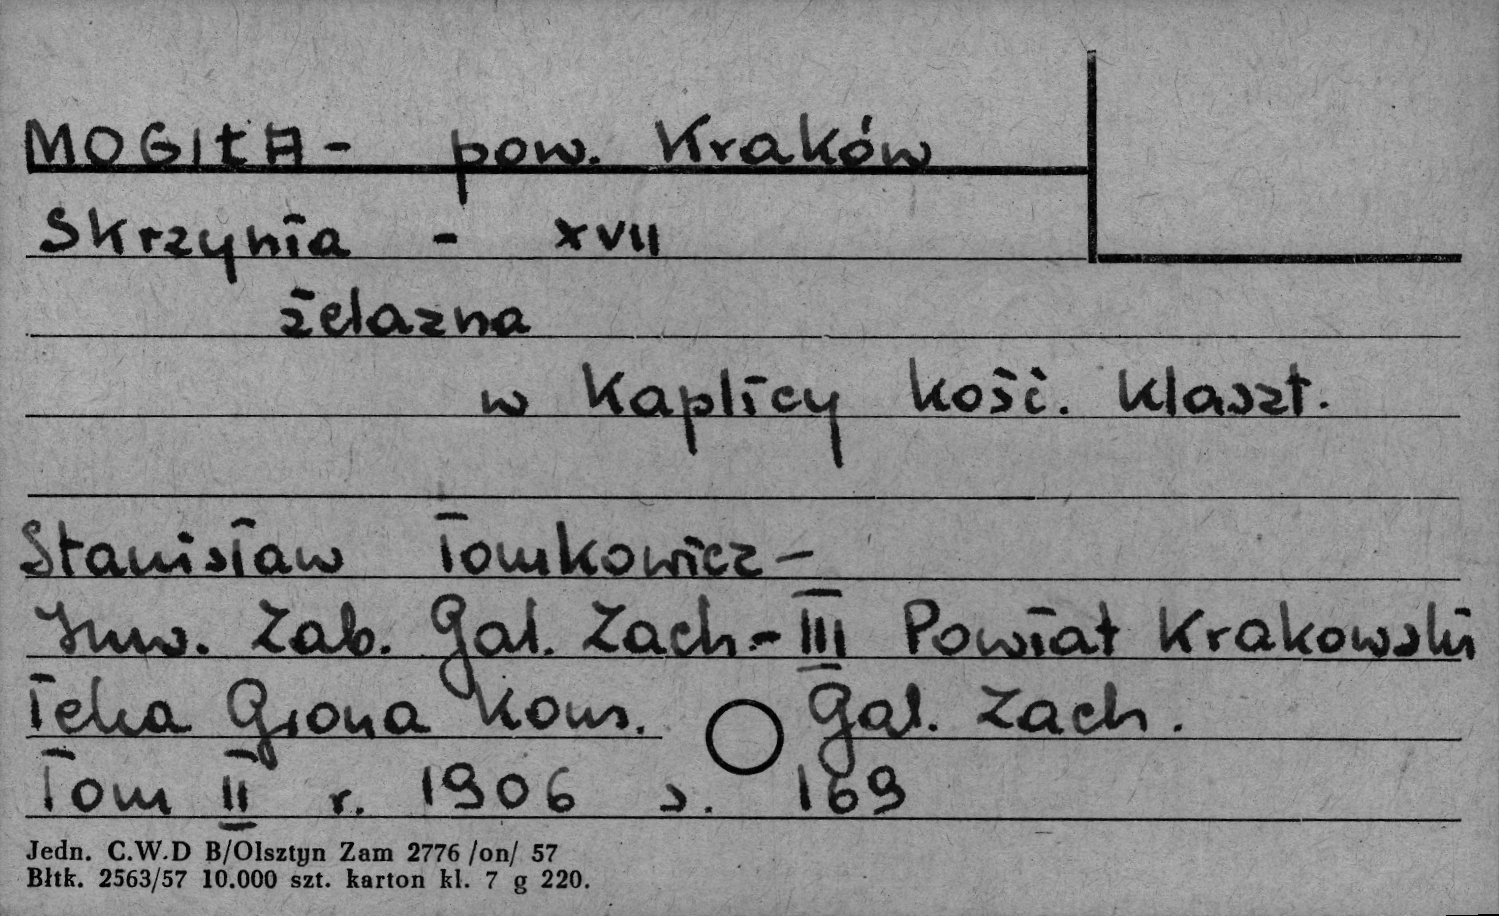 MOGIŁA - pow. Kraków
Skrzynia - XVII
żelazna
w Kaplicy kość. klaszt.
Stanisław Tomkowicz -
Inw. Zab. Gal. Zach. - III Powiat Krakowski
Teka Grona Kons. Gal. Zach.
Tom II r. 1906 s. 169
Jedn. C.W.D B/Olsztyn Zam 2776 /on/ 57
Błtk. 2563/57 10.000 szt. karton kl. 7 g 220.